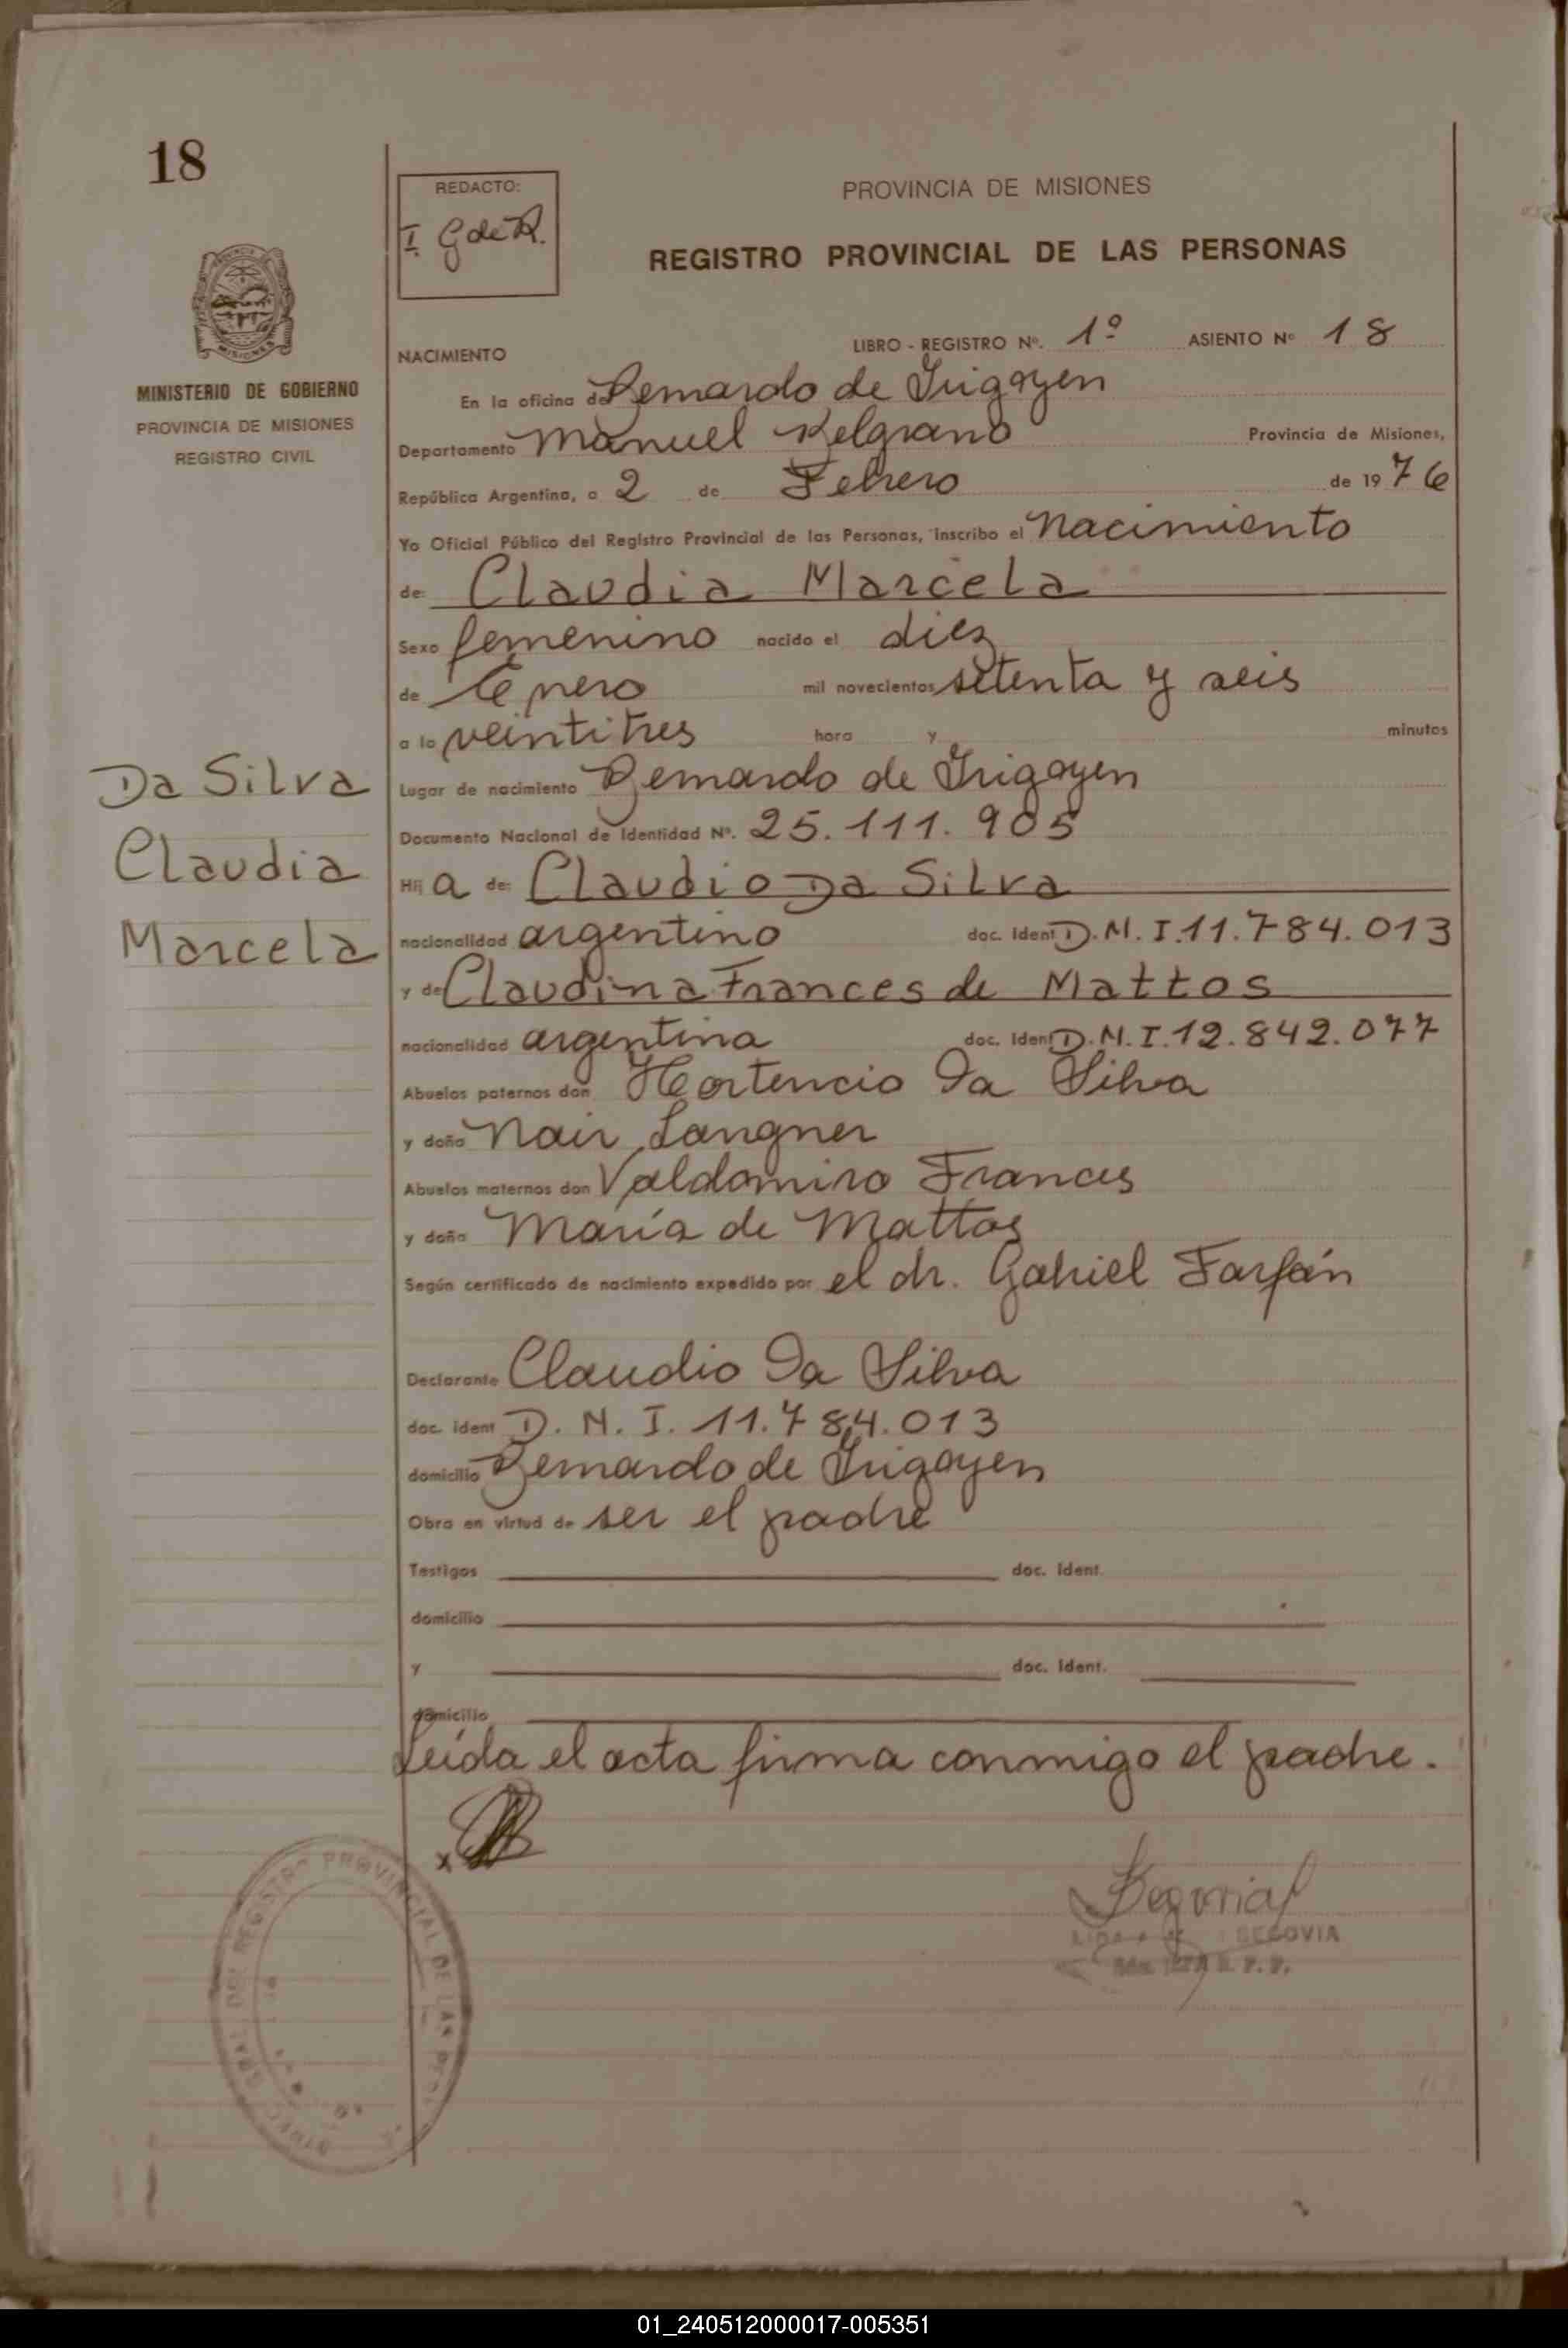 18
REDACTO:
I. G de R.
PROVINCIA DE MISIONES
REGISTRO PROVINCIAL DE LAS PERSONAS
MISIONES
MINISTERIO DE GOBIERNO
PROVINCIA DE MISIONES
REGISTRO CIVIL
NACIMIENTO
LIBRO - REGISTRO Nº. 1º ASIENTO Nº 18
En la oficina de Bernardo de Irigoyen
Departamento Manuel Belgrano Provincia de Misiones,
República Argentina, a 2 de Febrero de 1976
Yo Oficial Público del Registro Provincial de las Personas, inscribo el Nacimiento
de: Claudia Marcela
Sexo femenino nacido el diez
de Enero mil novecientos setenta y seis
a la veintitres hora y minutos
Da Silva
Claudia
Marcela
Lugar de nacimiento Bernardo de Irigoyen
Documento Nacional de Identidad Nº. 25.111.905
Hij a de: Claudio Da Silva
nacionalidad argentino doc. Ident D.N.I.11.784.013
y de Claudina Frances de Mattos
nacionalidad argentina doc. Ident D.N.I.12.842.077
Abuelos paternos don Hortencio Da Silva
y doña Nair Langner
Abuelos maternos don Valdomiro Frances
y doña María de Mattos
Según certificado de nacimiento expedido por el dr. Gabriel Farfán
Declarante Claudio Da Silva
doc. Ident D.N.I. 11.784.013
domicilio Bernardo de Irigoyen
Obra en virtud de ser el padre
Testigos doc. Ident.
domicilio
y doc. Ident.
domicilio
Leída el acta firma conmigo el padre.
x
SEGOVIA
REGISTRO PROVINCIAL DE LAS
01_240512000017-005351